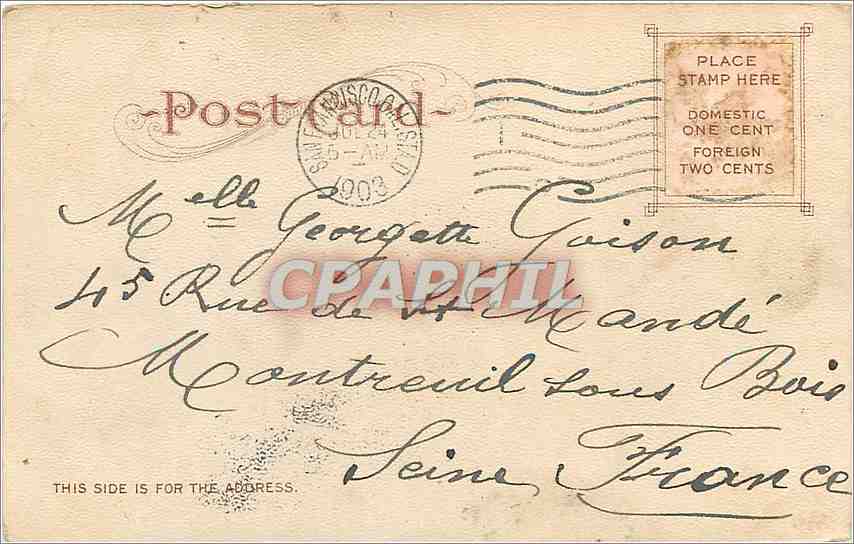 Post Card
SAN FRANCISCO, CAL. STA. D
JUL 24
5-AM
1903
PLACE
STAMP HERE
DOMESTIC
ONE CENT
FOREIGN
TWO CENTS
Melle Georgette Goison
45 Rue de St Mandé
CPAPHIL
Montreuil sous Bois
Seine France
THIS SIDE IS FOR THE ADDRESS.